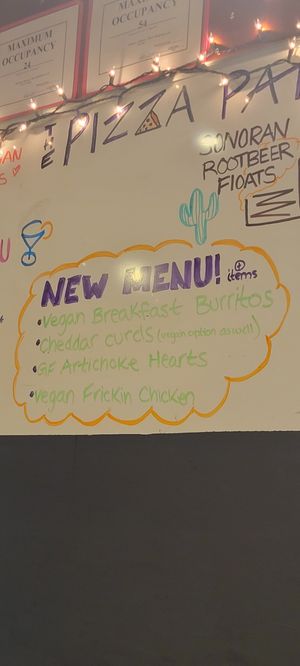 MAXIMUM
OCCUPANCY
24
MAXIMUM
OCCUPANCY
54
THE PIZZA
SONORAN
ROOTBEER
FLOATS
NEW MENU!
items
•Vegan Breakfast Burritos
•Cheddar curds (vegan option as well)
•GF Artichoke Hearts
•Vegan Frickin Chicken